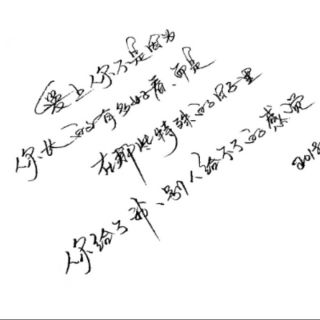 爱上你不是因为
你长的有多好看、而是
在那些特殊的日子里
你给了我、别人给不了的感觉